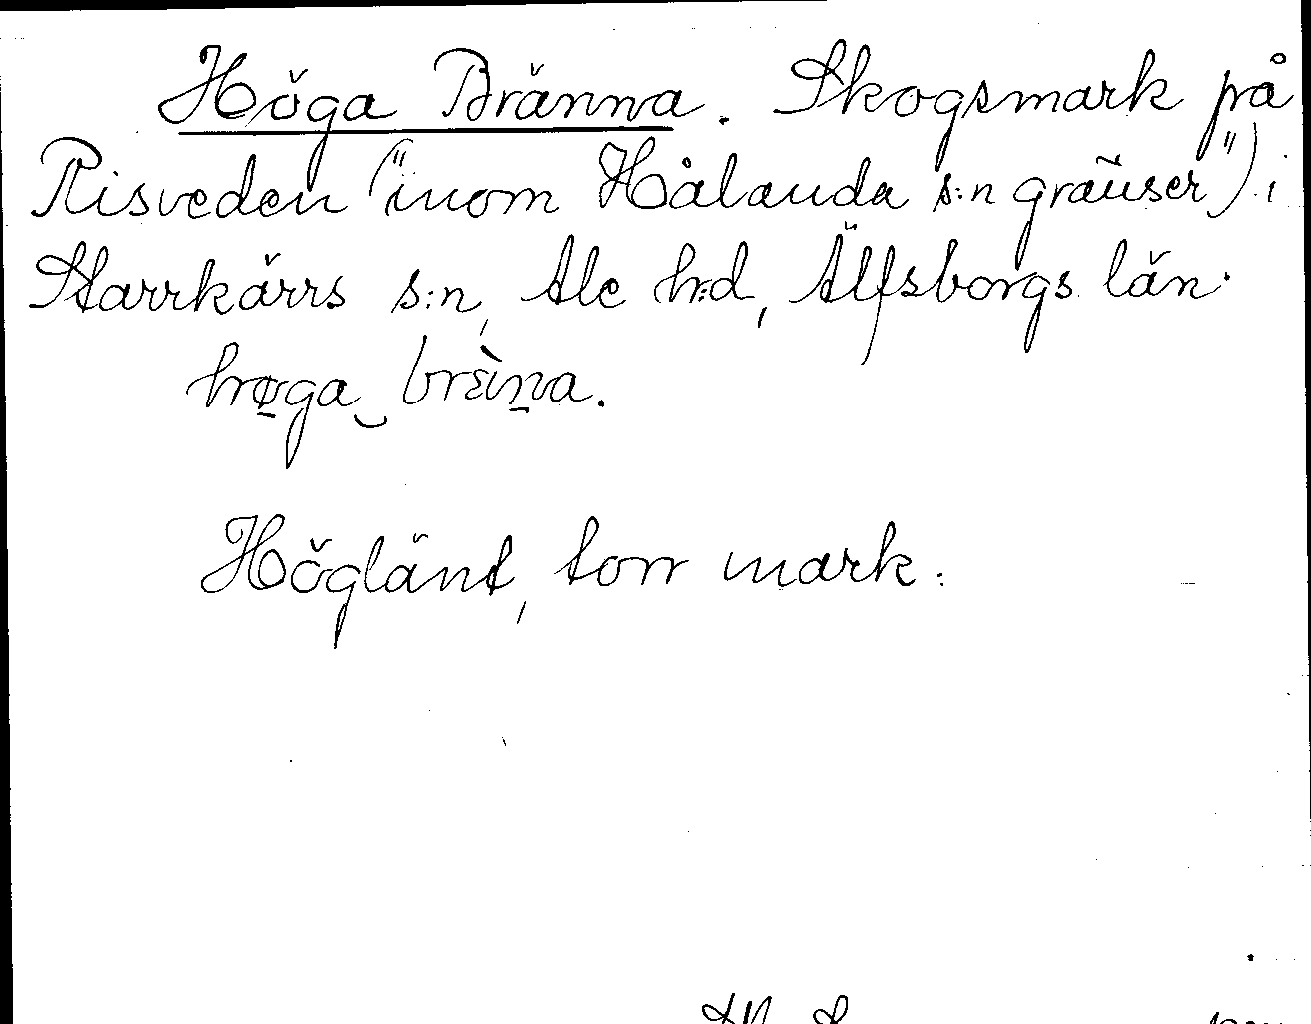 Höga Bränna. Skogsmark på
Risveden ("inom Hålanda s:n gränser") i
Starrkärrs s:n, Ale h:d, Älfsborgs län.
Högländt, torr mark.